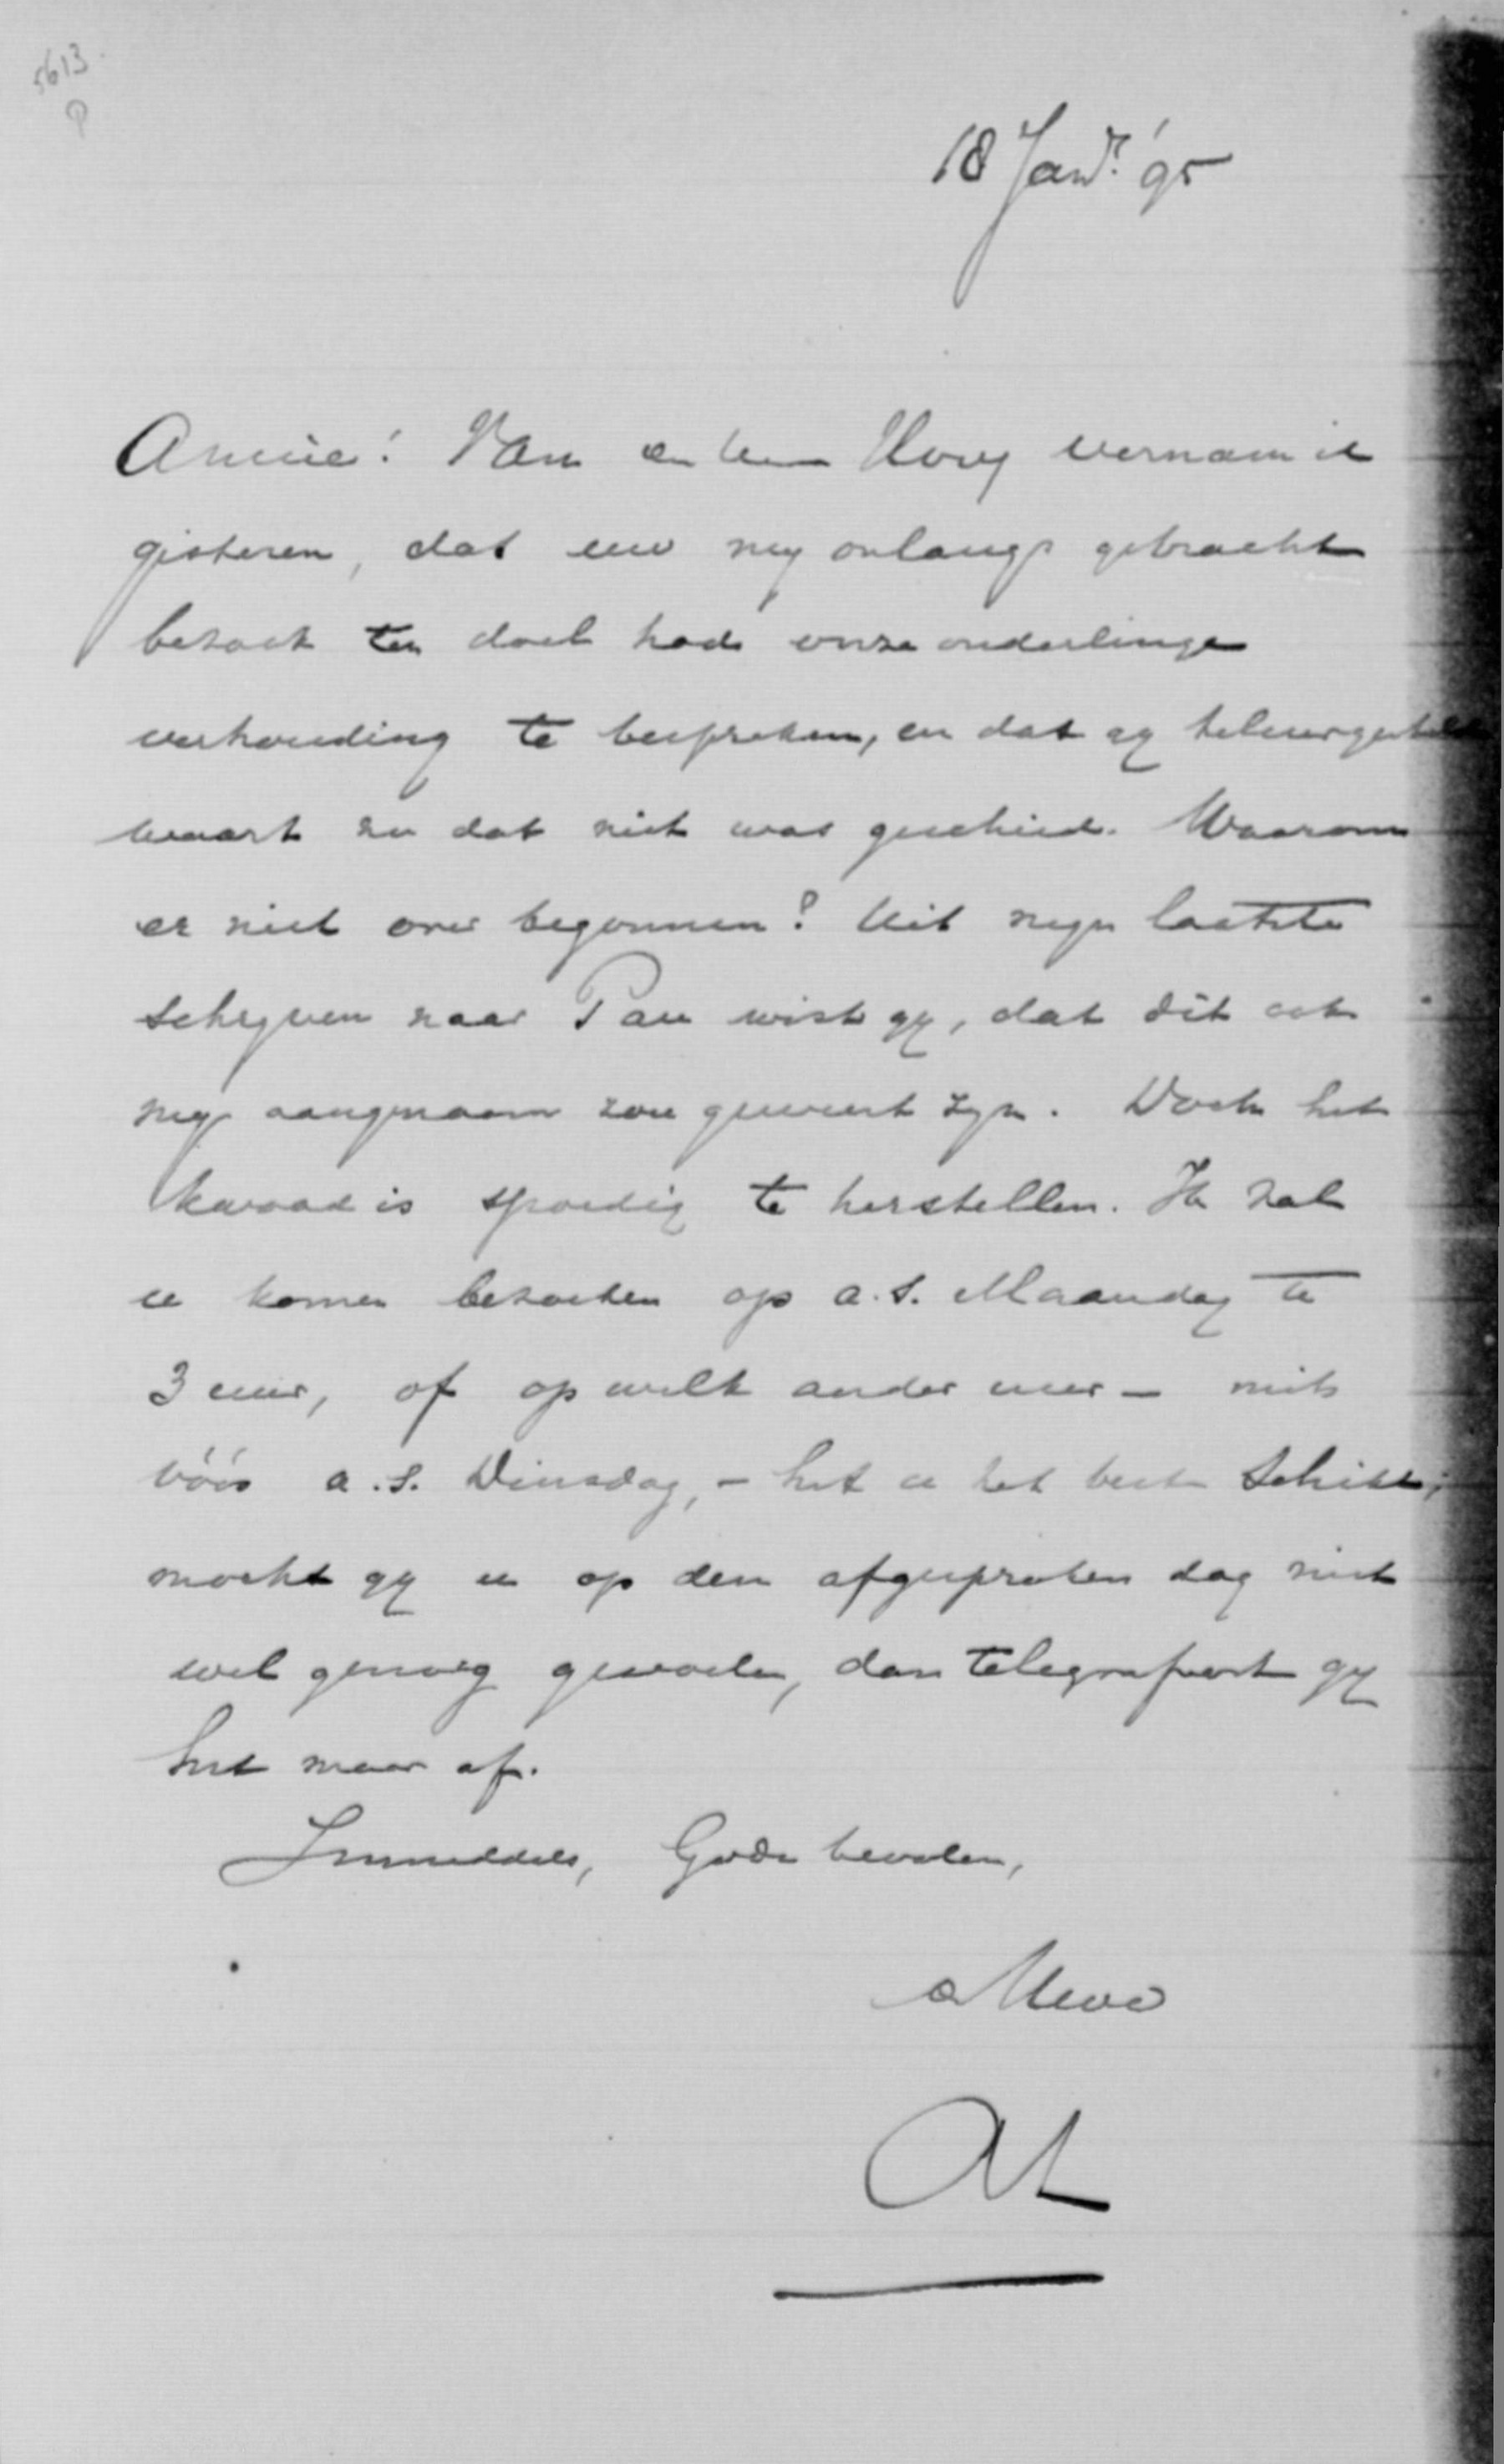 5613
P
18 Jan.r '95
Amice! Van Hovy vernam ik
gisteren, dat uw my onlangs gebracht
bezoek ten doel had onze onderlinge
verhouding te bespreken, en dat gy teleurgesteld
waart nu dat niet was geschied. Waarom
er niet over begonnen? Uit myn laatste
schryven naar Pau wist gy, dat dit ook
my aangenaam zou geweest zyn. Doch het
kwaad is spoedig te herstellen. Ik zal
u komen bezoeken op a.s. Maandag te
3 uur, of op welk ander uur – mits
vóór a.s. Dinsdag, – het u het best schikt;
mocht gy u op den afgesproken dag niet
wel genoeg gevoelen, dan telegrafeert gy
het maar af.
Inmiddels, Gode bevolen,